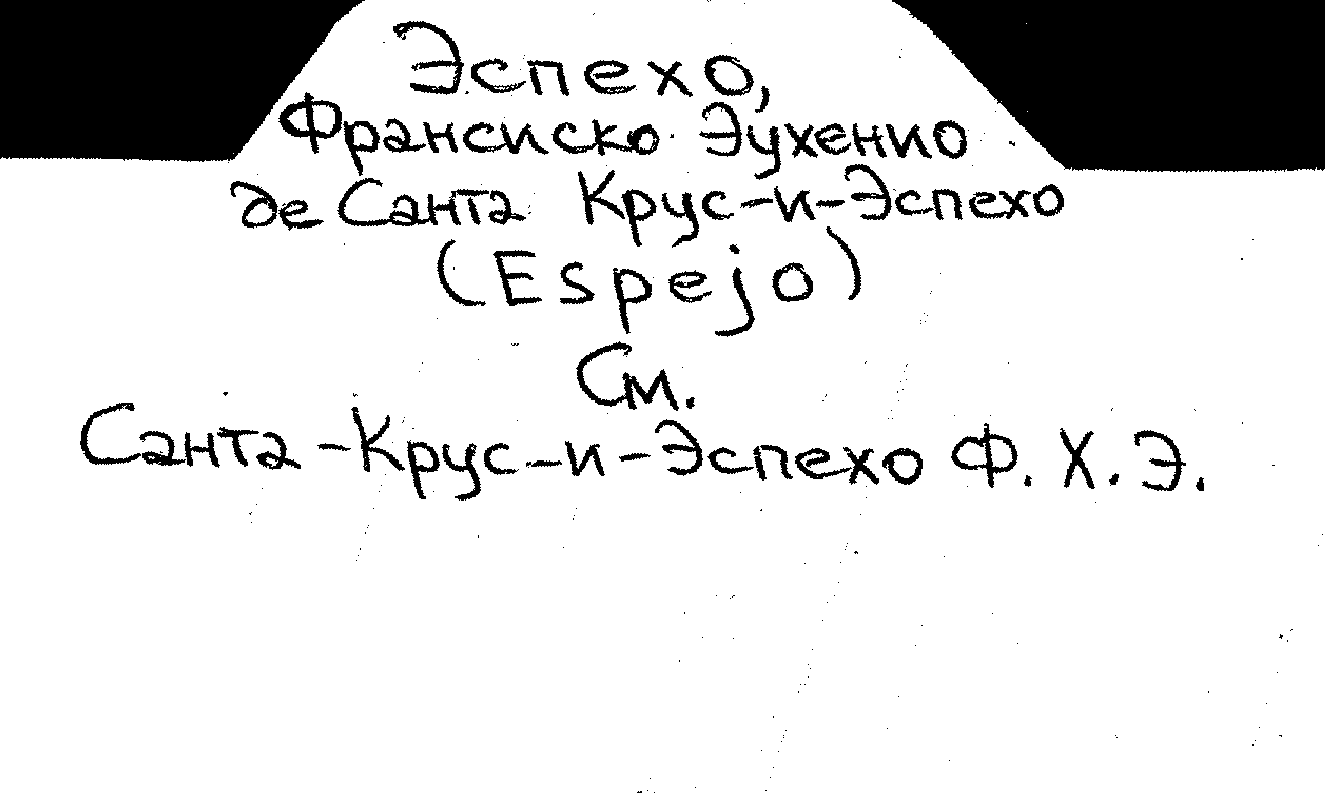 Эспехо,
Франсиско Эухенио
де Санта Крус-и-Эспехо
(Espejo)
См.
Санта-Крус-и-Эспехо Ф. Х. Э.